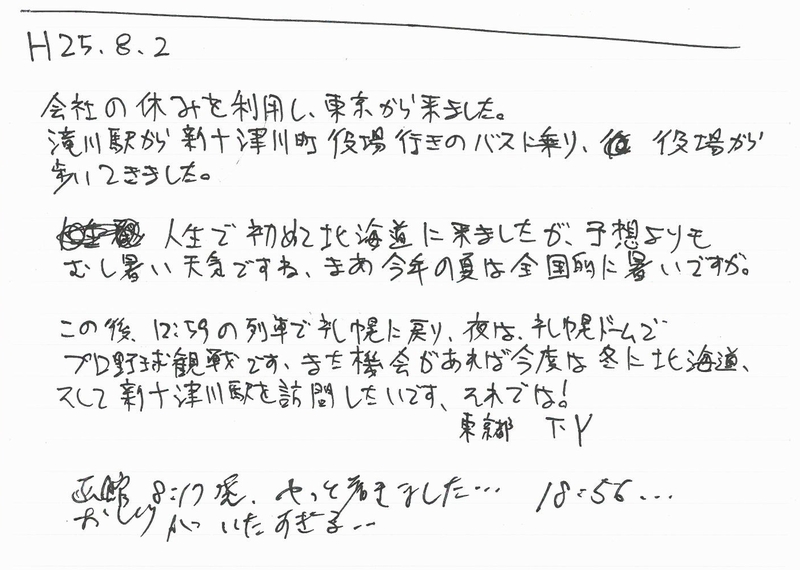 H25.8.2
会社の休みを利用し、東京から来ました。
滝川駅から新十津川町役場行きのバスに乗り、役場から
歩いてきました。
人生で初めて北海道に来ましたが、予想よりも
むし暑い天気ですね、まあ今年の夏は全国的に暑いですが。
この後、12:59の列車で札幌に戻り、夜は、札幌ドームで
プロ野球観戦です、また機会があれば今度は冬に北海道、
そして新十津川駅を訪問したいです、それでは!
東京都 T.Y
函館 8:17発、やって着きました… 18:56…
おしりがいたすぎる…